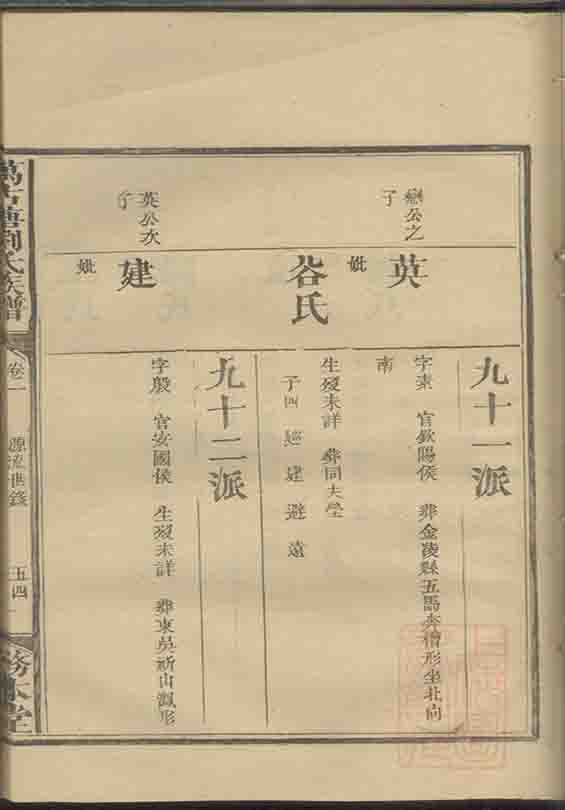 九十一派
戀公之子
英
字素 官欽陽侯 葬金陵縣五馬奔槽形坐北向南
妣
谷氏
生歿未詳 葬同夫塋
子四 巡 建 避 遠
九十二派
英公次子
建
字殷 官安國侯 生歿未詳 葬東吳新山鳳形
妣
萬古塘劉氏族譜
卷二
源流世錄
五四
務本堂